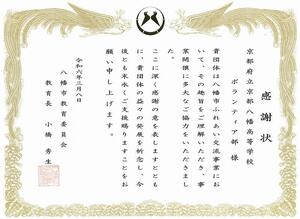 感謝状
京都府立京都八幡高等学校
ボランティア部 様
貴団体は八幡市ふれあい交流事業にお
いて、その趣旨をご理解いただき、事
業開催に多大なご協力をいただきまし
た。
ここに深く感謝の意を表しますととも
に、貴団体の益々の発展を祈念し、今
後とも末永くご支援賜りますことをお
願い申し上げます。
令和六年三月八日
八幡市教育委員会
教育長 小橋 秀生